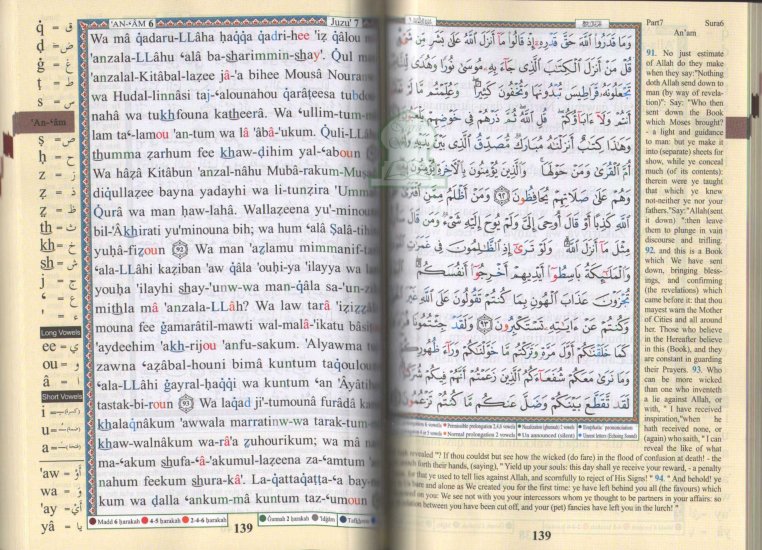 'AN-ʻÂM 6 Juzu' 7
Wa mâ q̇adaru-LLâha ḥaq̇q̇a q̇adri-hee 'iẓ q̇âlou m
'anzala-LLâhu ʻalâ ba-sharimmin-shay'. Q̇ul ma
'anzalal-Kitâbal-laẓee jâ-'a bihee Mousâ Nouran
wa Hudal-linnâsi taj-ʻalounahou q̇arâṭeesa tubdo
nahâ wa tukhfouna katheerâ. Wa ʻullim-tum-
lam taʻ-lamou 'an-tum wa lâ 'âbâ-'ukum. Q̇uli-LLâ
thumma ẓarhum fee khaw-ḍihim yal-ʻaboun
Wa hâẓâ Kitâbun 'anzal-nâhu Mubâ-rakum-Muṣ
diq̇ullaẓee bayna yadayhi wa li-tunẓira 'Umm
Q̇urâ wa man ḥaw-lahâ. Wallaẓeena yu'-minou
bil-'Âkhirati yu'minouna bih; wa hum ʻalâ Ṣalâ-tihi
yuḥâ-fiẓoun 92 Wa man 'aẓlamu mimmanif-ta
ʻala-LLâhi kaẓiban 'aw q̇âla 'ouḥi-ya 'ilayya wa la
youḥa 'ilayhi shay-'unw-wa man-q̇âla sa-'un-zi
mithla mâ 'anzala-LLâh? Wa law tarâ 'iẓiẓẓâ
mouna fee ġamarâtil-mawti wal-malâ-'ikatu bâsiṭ
'aydeehim 'akh-rijou 'anfu-sakum. 'Alyawma tu
zawna ʻaẓâbal-houni bimâ kuntum taq̇oulou
ʻala-LLâhi ġayral-ḥaq̇q̇i wa kuntum ʻan 'Âyâtihi
tastak-biroun 93 Wa laq̇ad ji'-tumounâ furâdâ ka
khalaq̇nâkum 'awwala marratinw-wa tarak-tum-
khaw-walnâkum wa-râ'a ẓuhourikum; wa mâ na
ma-ʻakum shufa-ʻâ-'akumul-laẓeena za-ʻamtum 'a
nahum feekum shura-kâ'. La-q̇attaq̇aṭṭa-ʻa bay-n
kum wa ḍalla ʻankum-mâ kuntum taz-ʻumoun
139
ق = q̇
ض = ḍ
غ = ġ
ط = ṭ
س = s
'An-ʻâm
ص = ṣ
ح = ḥ
ز = z
ذ = ẓ
ظ = ẓ
ث = th
خ = kh
ش = sh
ج = j
ع = ʻ
ء = '
Long Vowels
ee = ي
ou = و
â = ا
Short Vowels
i =
u =
a =
'aw = أَوْ
wa = وَ
'ay = أَيْ
yâ = يَا
Madd 6 ḥarakah 4-5 ḥarakah 2-4-6 ḥarakah Ġunnah 2 ḥarakah 'Idġâm Tafkheem
وَمَا قَدَرُوا۟ ٱللَّهَ حَقَّ قَدْرِهِۦٓ إِذْ قَالُوا۟ مَآ أَنزَلَ ٱللَّهُ عَلَىٰ بَشَرٍ مِّن شَىْءٍ
قُلْ مَنْ أَنزَلَ ٱلْكِتَٰبَ ٱلَّذِى جَآءَ بِهِۦ مُوسَىٰ نُورًا وَهُدًى لِّلنَّاسِ
تَجْعَلُونَهُۥ قَرَاطِيسَ تُبْدُونَهَا وَتُخْفُونَ كَثِيرًا وَعُلِّمْتُم مَّا لَمْ
أَنتُمْ وَلَآ ءَابَآؤُكُمْ قُلِ ٱللَّهُ ثُمَّ ذَرْهُمْ فِى خَوْضِهِمْ يَلْعَبُونَ
وَهَٰذَا كِتَٰبٌ أَنزَلْنَٰهُ مُبَارَكٌ مُّصَدِّقُ ٱلَّذِى بَيْنَ يَدَيْهِ
أُمَّ ٱلْقُرَىٰ وَمَنْ حَوْلَهَا وَٱلَّذِينَ يُؤْمِنُونَ بِٱلْءَاخِرَةِ يُؤْمِنُونَ
وَهُمْ عَلَىٰ صَلَاتِهِمْ يُحَافِظُونَ ٩٢ وَمَنْ أَظْلَمُ مِمَّنِ ٱفْتَرَىٰ
ٱللَّهِ كَذِبًا أَوْ قَالَ أُوحِىَ إِلَىَّ وَلَمْ يُوحَ إِلَيْهِ شَىْءٌ وَمَن قَالَ
مِثْلَ مَآ أَنزَلَ ٱللَّهُ وَلَوْ تَرَىٰٓ إِذِ ٱلظَّٰلِمُونَ فِى غَمَرَٰتِ
وَٱلْمَلَٰٓئِكَةُ بَاسِطُوٓا۟ أَيْدِيهِمْ أَخْرِجُوٓا۟ أَنفُسَكُمُ
تُجْزَوْنَ عَذَابَ ٱلْهُونِ بِمَا كُنتُمْ تَقُولُونَ عَلَى ٱللَّهِ غَيْرَ
وَكُنتُمْ عَنْ ءَايَٰتِهِۦ تَسْتَكْبِرُونَ ٩٣ وَلَقَدْ جِئْتُمُونَا
كَمَا خَلَقْنَٰكُمْ أَوَّلَ مَرَّةٍ وَتَرَكْتُم مَّا خَوَّلْنَٰكُمْ وَرَآءَ ظُهُورِكُمْ
وَمَا نَرَىٰ مَعَكُمْ شُفَعَآءَكُمُ ٱلَّذِينَ زَعَمْتُمْ أَنَّهُمْ فِيكُمْ شُرَكَٰٓؤُا۟
لَقَد تَّقَطَّعَ بَيْنَكُمْ وَضَلَّ عَنكُم مَّا كُنتُمْ تَزْعُمُونَ
Part7 Sura6
An'am
91. No just estimate
of Allah do they make
when they say:"Nothing
doth Allah send down to
man (by way of revela-
tion)": Say: "Who then
sent down the Book
which Moses brought?
- a light and guidance
to man: but ye make it
into (separate) sheets for
show, while ye conceal
much (of its contents):
therein were ye taught
that which ye knew
not-neither ye nor your
fathers."Say:"Allah(sent
it down) ":then leave
them to plunge in vain
discourse and trifling.
92. and this is a Book
which We have sent
down, bringing bless-
ings, and confirming
(the revelations) which
came before it: that thou
mayest warn the Mother
of Cities and all around
her. Those who believe
in the Hereafter believe
in this (Book), and they
are constant in guarding
their Prayers. 93. Who
can be more wicked
than one who inventeth
a lie against Allah, or
with, " I have received
inspiration,"when he
hath received none, or
(again) who saith, " I can
reveal the like of what
revealed "? If thou couldst but see how the wicked (do fare) in the flood of confusion at death! - the
forth their hands, (saying), " Yield up your souls: this day shall ye receive your reward, - a penalty
for that ye used to tell lies against Allah, and scornfully to reject of His Signs! " 94. " And behold! ye
bare and alone as We created you for the first time: ye have left behind you all (the favours) which
on you: We see not with you your intercessors whom ye thought to be partners in your affairs: so
relation between you have been cut off, and your (pet) fancies have left you in the lurch! "
Permissible prolongation 2,4,6 vowels Nazalization (ghunnah) 2 vowels Emphatic pronunciation
Normal prolongation 2 vowels Un announced (silent) Unrest letters (Echoing Sound)
139